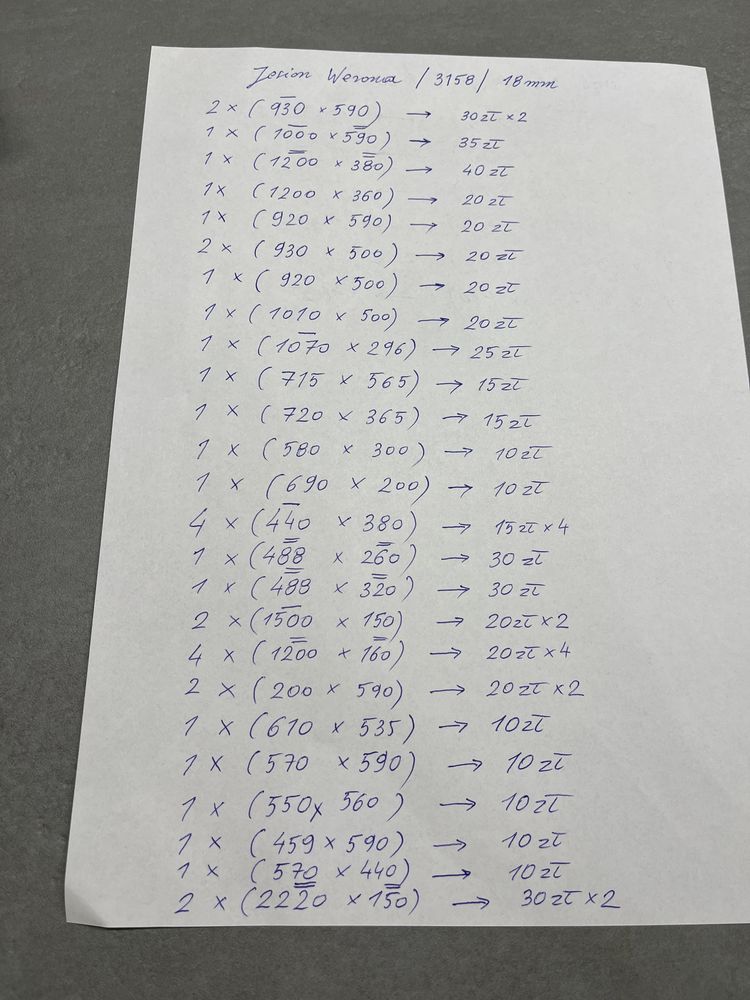 Jesion Werona / 3158 / 18mm
2 × (930 × 590) → 30zł × 2
1 × (1000 × 590) → 35zł
1 × (1200 × 380) → 40zł
1 × (1200 × 360) → 20zł
1 × (920 × 590) → 20zł
2 × (930 × 500) → 20zł
1 × (920 × 500) → 20zł
1 × (1010 × 500) → 20zł
1 × (1070 × 296) → 25zł
1 × (715 × 565) → 15zł
1 × (720 × 365) → 15zł
1 × (580 × 300) → 10zł
1 × (690 × 200) → 10zł
4 × (440 × 380) → 15zł × 4
1 × (488 × 260) → 30zł
1 × (488 × 320) → 30zł
2 × (1500 × 150) → 20zł × 2
4 × (1200 × 160) → 20zł × 4
2 × (200 × 590) → 20zł × 2
1 × (610 × 535) → 10zł
1 × (570 × 590) → 10zł
1 × (550 × 560) → 10zł
1 × (459 × 590) → 10zł
1 × (570 × 440) → 10zł
2 × (2220 × 150) → 30zł × 2